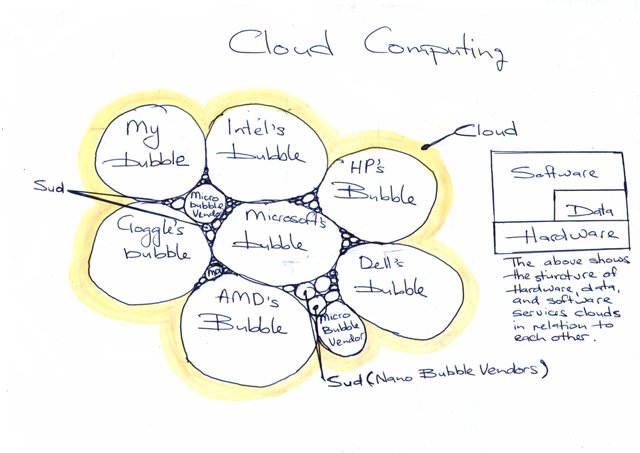 Cloud Computing
My
bubble
Intel's
bubble
Cloud
HP's
Bubble
Sud
Micro
bubble
Vendor
Microsoft's
bubble
Google's
bubble
Dell's
bubble
AMD's
Bubble
Micro
Bubble
Vendor
Sud (Nano Bubble Vendors)
Software
Data
Hardware
The above shows
the sturature of
Hardware, data,
and software
services clouds
in relation to
each other.